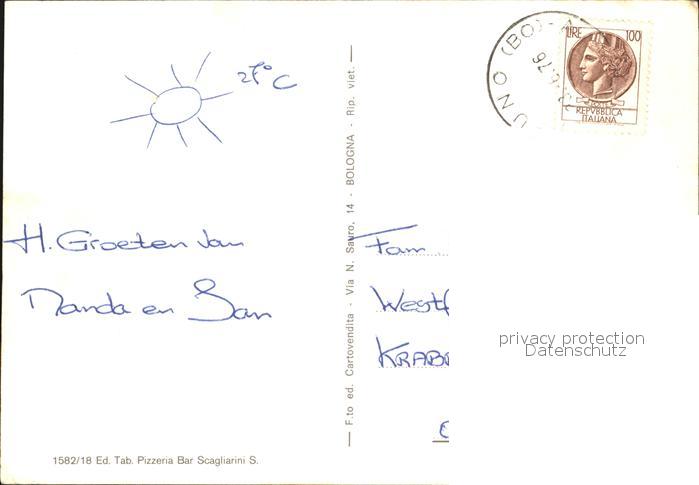 27°C
H. Groeten van
Nanda en Jan
1582/18 Ed. Tab. Pizzeria Bar Scagliarini S.
F.to ed. Cartovendita - Via N. Sauro, 14 - BOLOGNA - Rip. viet.
(BO)
76
LIRE 100
REPVBBLICA
ITALIANA
Fam
privacy protection
Datenschutz